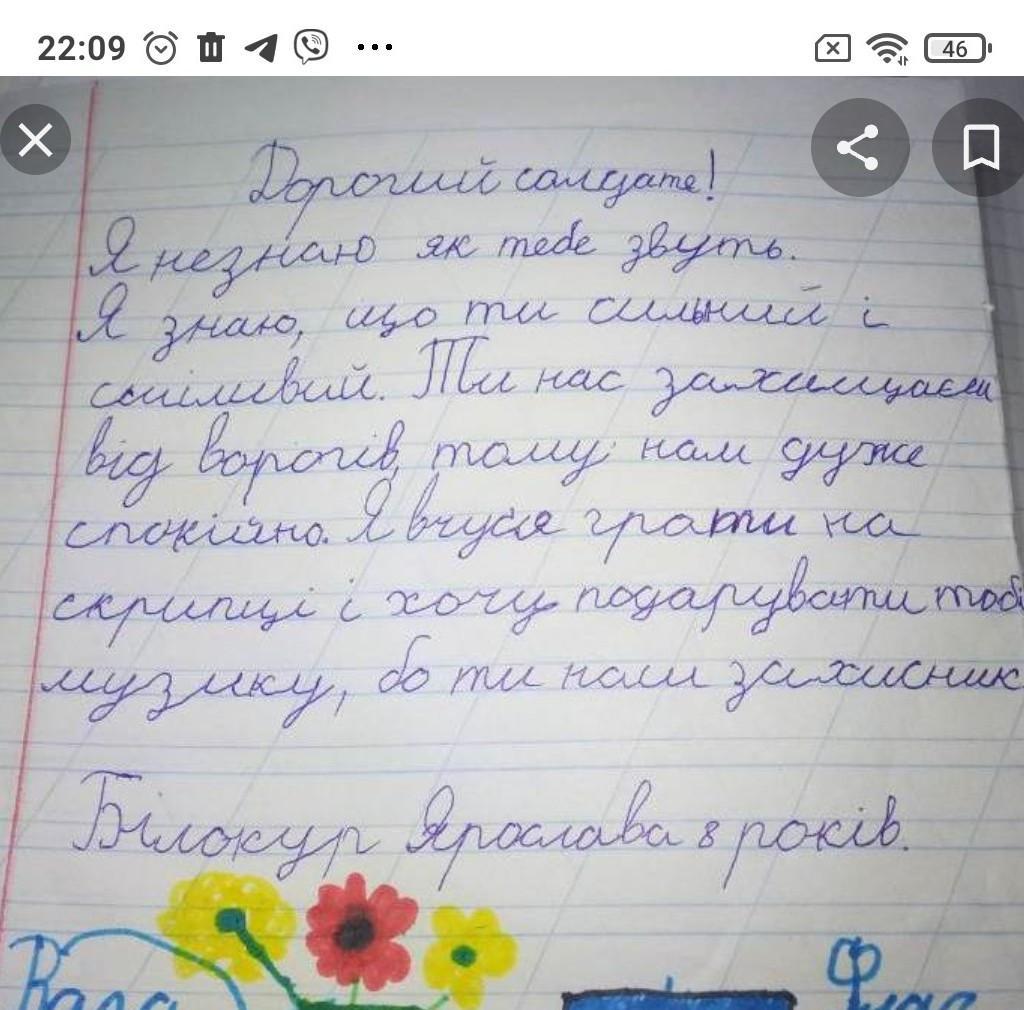 22:09
46
Дорогий солдате!
Я незнаю як тебе звуть.
Я знаю, що ти сильний і
сміливий. Ти нас захищаєш
від ворогів, тому нам дуже
спокійно. Я вчуся грати на
скрипці і хочу подарувати тобі
музику, бо ти наш захисник
Білокур Ярослава 8 років.